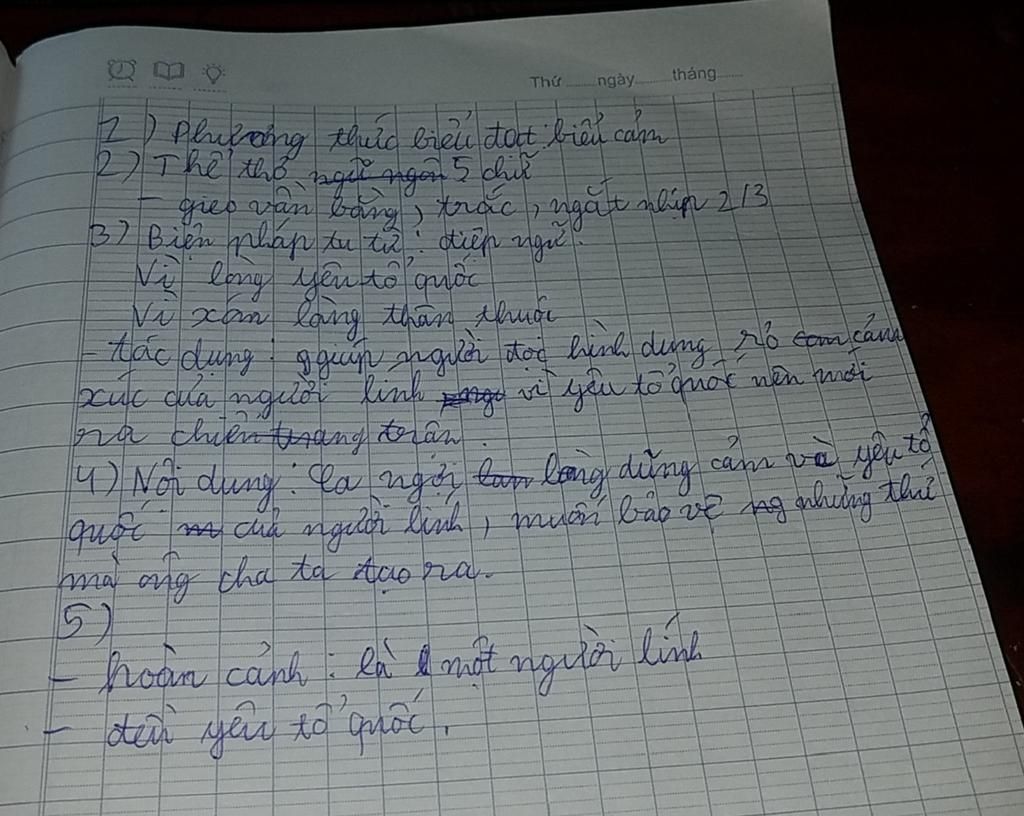 Thứ ngày tháng
1) Phương thức biểu đạt: biểu cảm
2) Thể thơ 5 chữ
- gieo vần bằng, trắc, ngắt nhịp 2/3
3) Biện pháp tu từ: điệp ngữ.
Vì lòng yêu tổ quốc
Vì xóm làng thân thuộc
- tác dụng: giúp người đọc hình dung rõ cảm
xúc của người lính vì yêu tổ quốc nên mới
ra chiến trận.
4) Nội dung: Ca ngợi lòng dũng cảm và yêu tổ
quốc của người lính, muốn bảo vệ những thứ
mà ông cha ta tạo ra.
5)
- hoàn cảnh: là một người lính
- đều yêu tổ quốc.